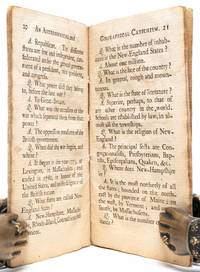 20 An Astronomical and
A. Republican. The different
states are free and independent, con-
federated under the general govern-
ment of a president, two
and congress.
Q. What power did they belong
to, before the late war?
A. To Great-Britain.
Q. What was the occasion of the
war which separated them from that
power?
A. The oppressive measures of the
British government.
Q. When did the war begin, and
where?
A. It began in the year 1775, at
Lexington, in Massachusetts; and
ended in the
United States, and
the British nation
Q. What states are called New-
England?
A. New-Hampshire, Massachu-
setts, Rhode-Island, Connecticut and
Geographical Catechism. 21
Q. What is the number of inhab-
itants in the New-England States?
A. About one million.
Q. What is the face of the country?
A. In general, rough and moun-
tainous.
Q. What is the state of literature?
A. Superior, perhaps, to that of
any other country in the world.
Schools are established by law, in al-
most all the townships.
Q. What is the religion of New-
England?
A. The principal sects are Con-
gregationalists, Presbyterians, Bap-
tists, Episcopalians, Quakers, &c.
Q. Where does New-Hampshire
lie?
A. It is the most northerly of all
the states; bounded on the north-
east by the province of Maine;
the west, by Vermont; and
south, by Massachusetts.
Q. What is the number